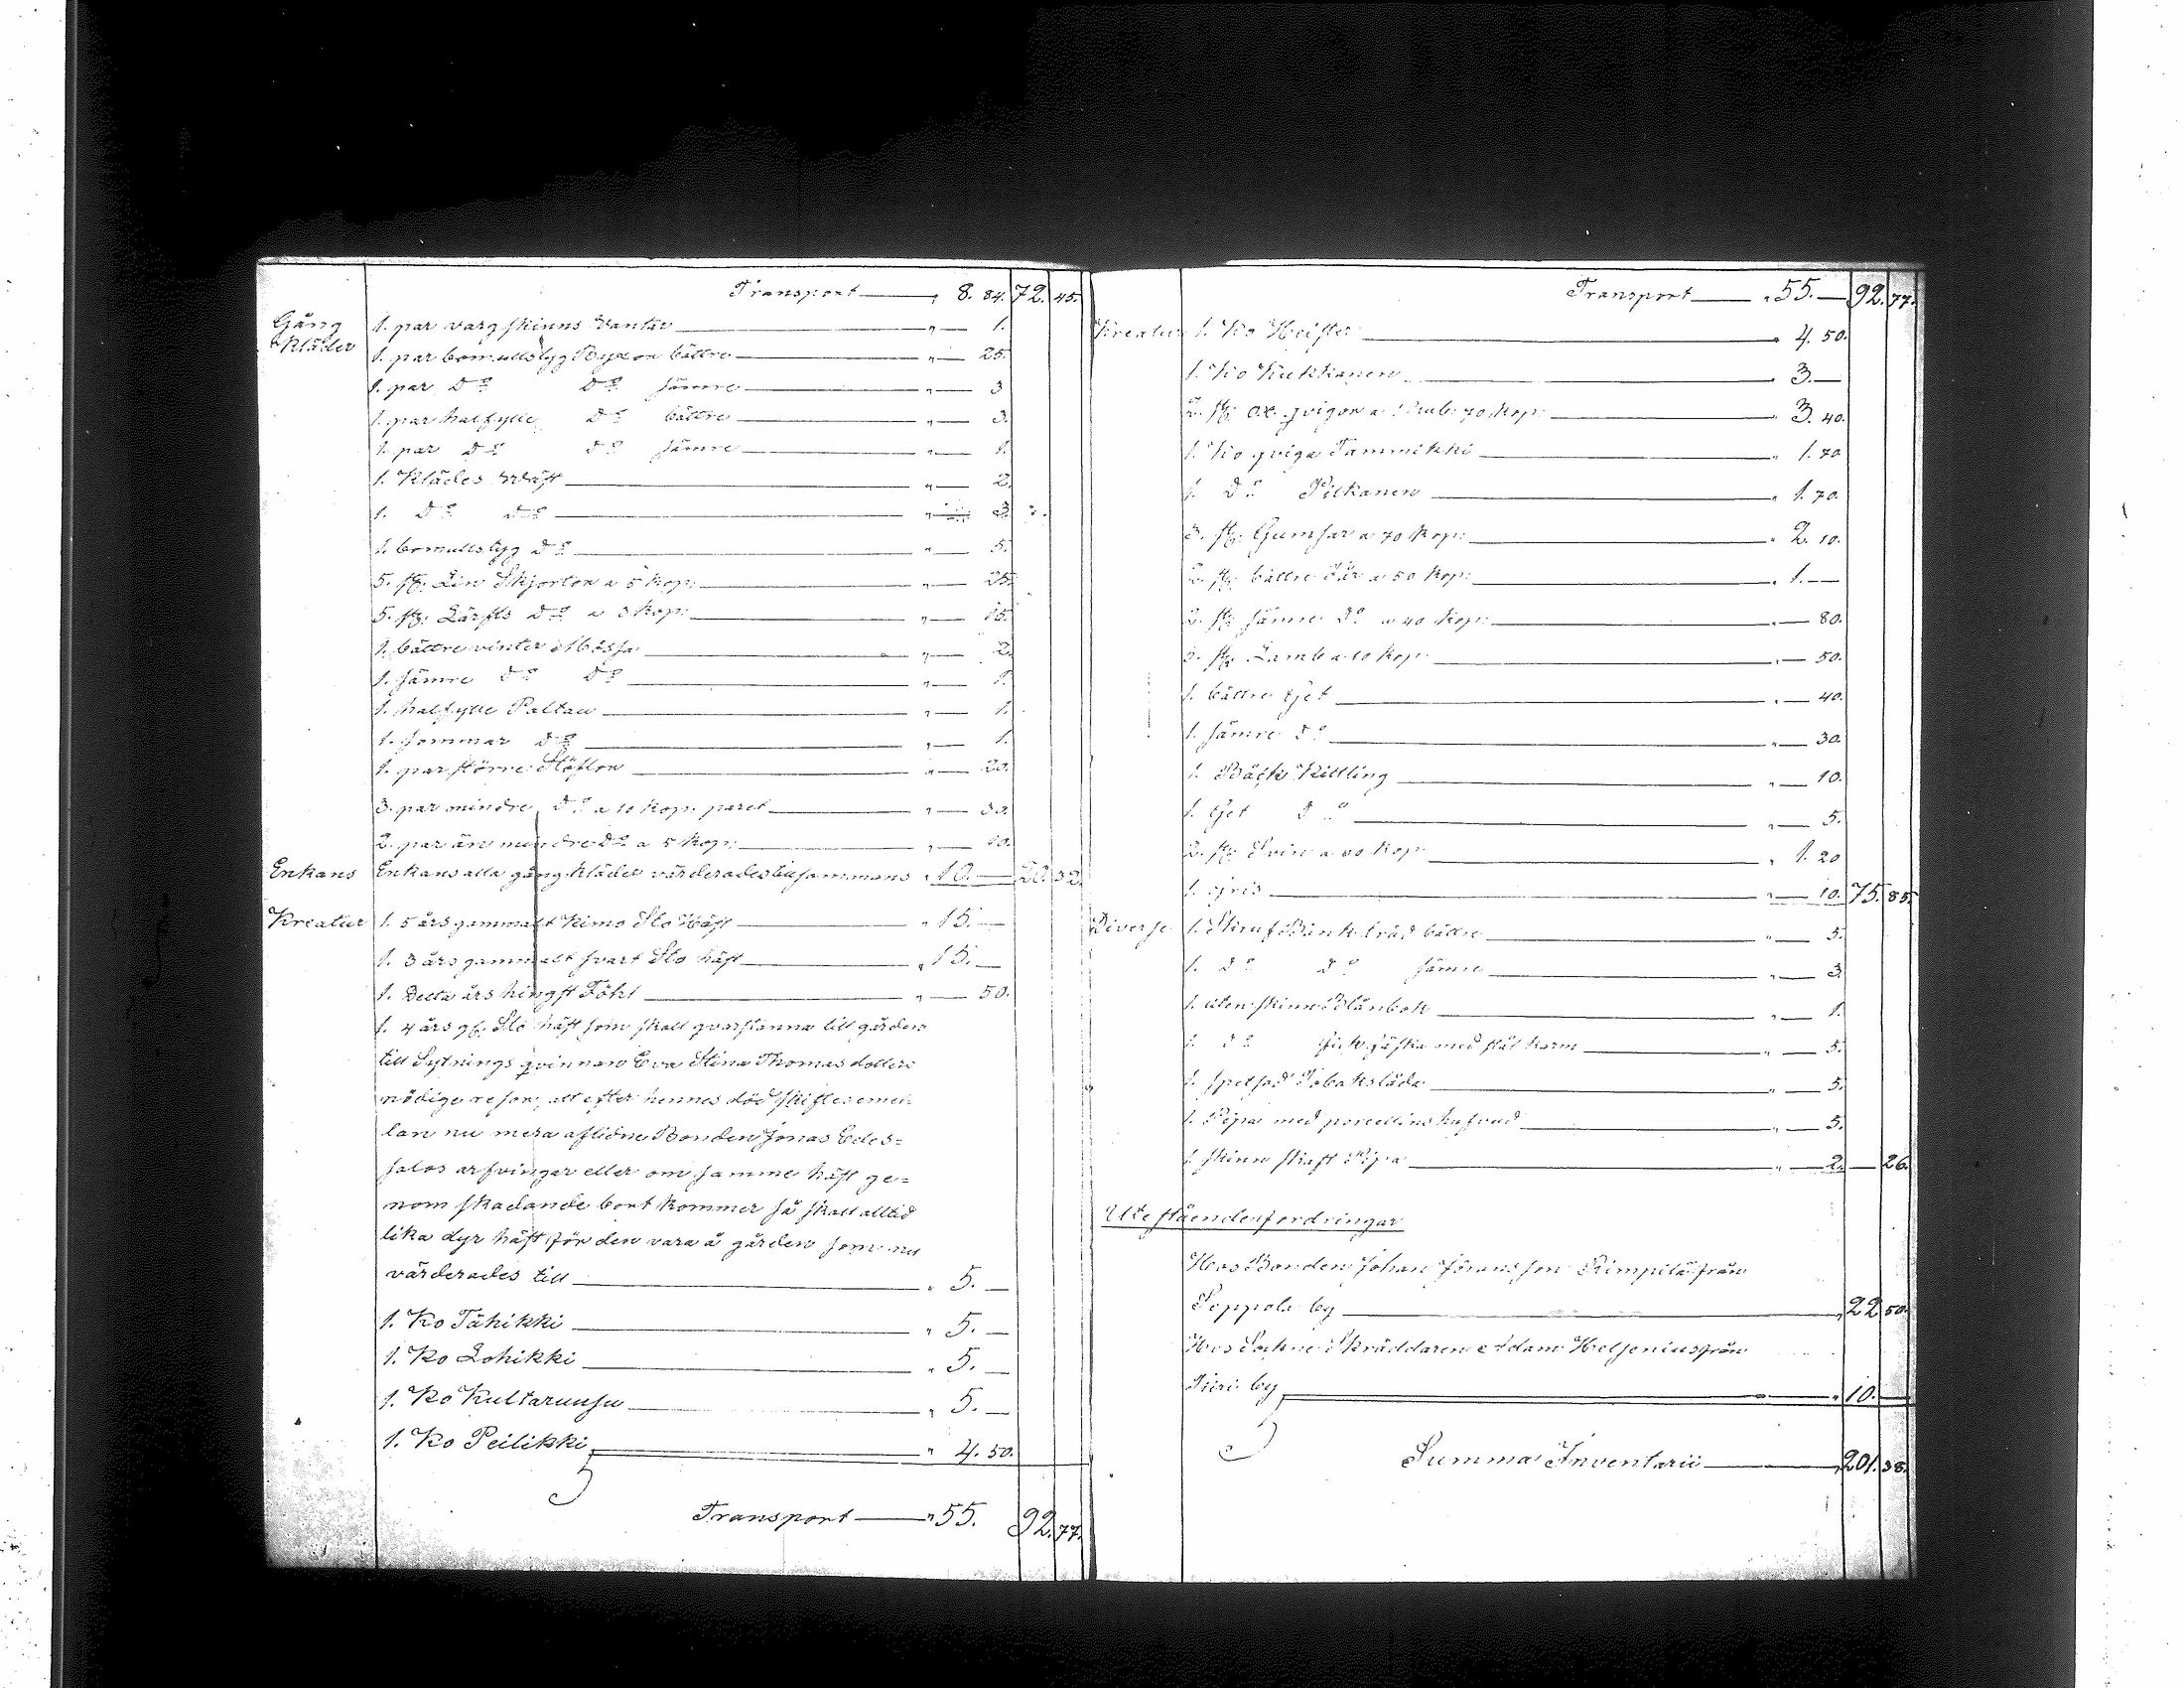 Transport — „ 8. 84. 72. 45.
Gång
kläder
1. par varg skinns Vantar — „ — 1.
1. par bomullstyg Byxon bättre — „ — 25.
1. par Do Do sämre — „ — 3
1. par halfylle Do bättre — „ — 3.
1. par Do Do sämre — „ — 1.
1. Klädes Wäst — „ — 2.
1. Do Do — „ — 3
1. bomullstyg Do — „ — 5.
5. st: Lin Skjorton a 5 kop: — „ — 25.
5. st: Lärfts Do a 3 kop: — „ — 15.
1. bättre vinter Mössa — „ — 2.
1. sämre Do Do — „ — 1.
1. halfylle Paltau — „ — 1.
1. sommar Do — „ — 1.
1. par större Stöflon — „ — 20.
3. par mindre Do a 10 kop: paret — „ — 30.
2. par än mindre Do a 5 kop: — „ — 10.
Enkans Enkans alla gång kläder värderades tillsammans „ 10. — 20. 32.
Kreatur 1. 5 års gammalt Kimo Sto Häst — „ 15. —
1. 3 års gammalt svart Sto häst — „ 15. —
1. Detta års hingst Föhl — „ — 50.
1. 4 års gl: Sto häst som skall qvarstanna till gården
till Sytnings qvinnan Eva Stina Thomas dotters
nödige resor, att efter hennes död skiftes emel-
lan nu mera aflidne Bonden Jonas Edes=
salos arfvingar eller om samme häst ge=
nom skadande bort kommer så skall alltid
lika dyr häst för den vara å gården som nu
värderades till — „ 5. —
1. Ko Tähikki — „ 5. —
1. Ko Lohikki — „ 5. —
1. Ko Kultaruusu — „ 5. —
1. Ko Peilikki — „ 4. 50.
Transport — „ 55. 92. 77.
Transport — „ 55. — 92. 77.
Kreatur 1. Ko Heister — „ 4. 50.
1. Ko Kukkanen — „ 3. —
2. st: ox qvigor a 1 Rub: 70 kop: — „ 3. 40.
1. Ko qviga Tammikki — „ 1. 70
1. Do Pilkanen — „ 1. 70.
3. st: Gumsar a 70 kop: — „ 2. 10.
2. st: bättre Får a 50 kop: — „ 1. —
2. st: sämre Do a 40 kop: — „ — 80.
5. st: Lamb a 10 kop: — „ — 50.
1. bättre Get — „ — 40.
1. sämre Do — „ — 30.
1. Båck Killling — „ — 10.
1. Get Do — „ — 5.
2. st: Svin a 60 kop: — „ 1. 20
1. Gris — „ — 10. 75. 85.
Diverse 1. Skruf Bänk träd bättre — „ — 5.
1. Do Do sämre — „ — 3.
1. uten skinn Plånbok — „ — 1.
1. Do med stål karm — „ — 5.
1. Tobaksläda — „ — 5.
1. Pipa med porcellins hufvud — „ — 5.
1. skinn skaft Pipa — „ — 2. — 26.
Utestående fordringar
Hos Bonden Johan Göransson Rimpilä från
Seppola by — „ 22 50.
Hos Sockne Skräddaren Adam Helsenius från
Jüri by — „ 10. —
Summa Inventarii — 201. 38.